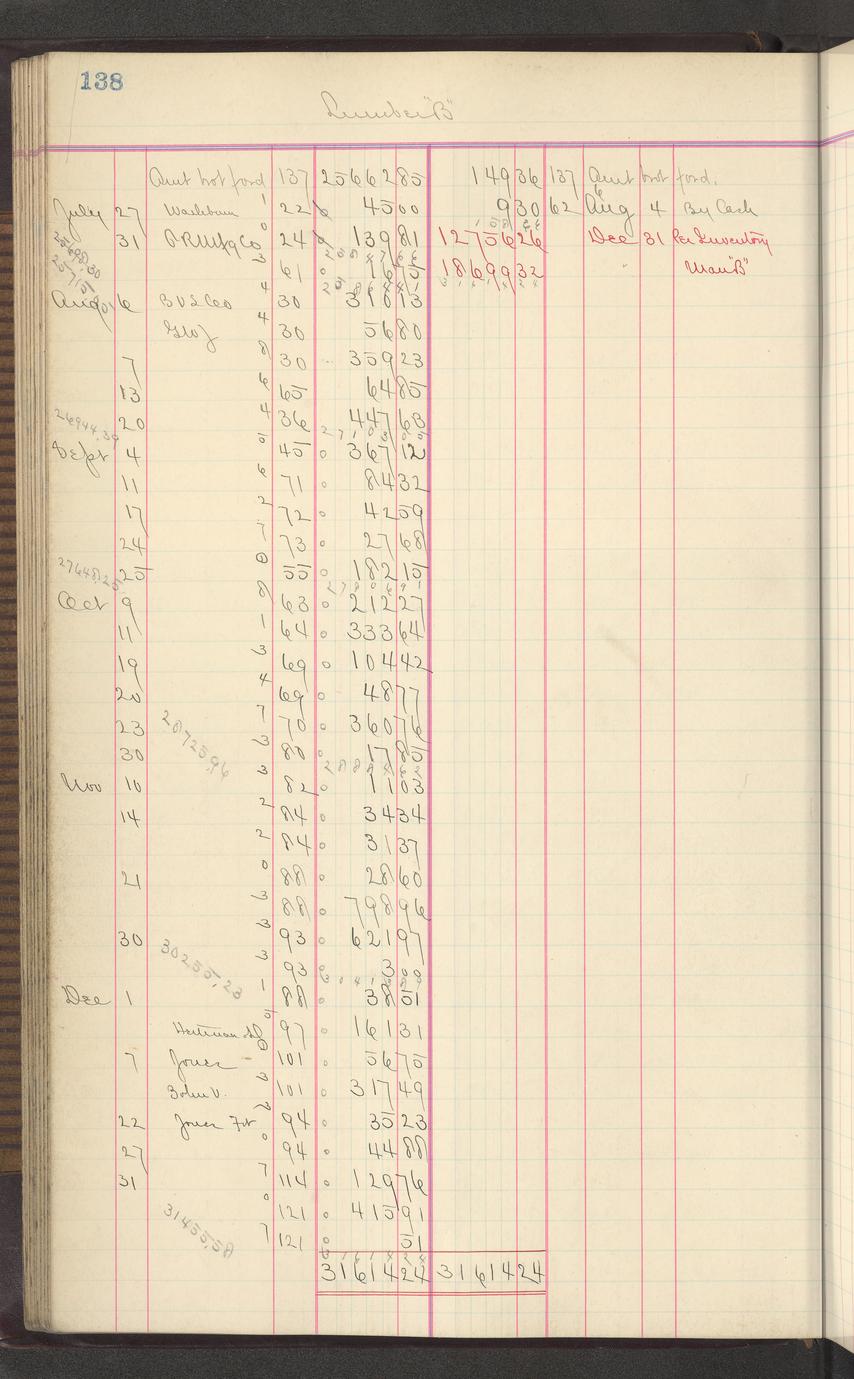 138
Lumber "B"
Amt brot ford 137 25662 85 149 36 137 Amt brot ford.
July 27 Washburn 22 45 00 9 30 62 Aug 4 By Cash
31 O.R.M'f'g Co 24 139 81 12756 26 Dec 31 Per Inventory
61 16 75 18699 32 " Man "B"
Aug 6 B V S Ceo 30 310 13
30 56 80
7 30 359 23
13 65 64 85
20 36 447 63
26944.39
Sept 4 45 367 12
11 71 84 32
17 72 42 59
24 73 27 68
25 55 182 15
27648.25
Oct 9 63 212 27
11 64 333 64
19 69 104 42
20 69 48 77
23 70 360 76
30 80 17 85
28725.96
Nov 10 82 11 03
14 84 34 34
84 31 37
21 88 28 60
88 798 96
30 93 621 97
93 3 00
30255.23
Dec 1 88 38 51
97 161 31
7 Jones 101 56 75
Bohn V. 101 317 49
22 Jones Frt 94 35 23
27 94 44 88
31 114 129 76
121 415 91
121 51
31455.58
31614 24 31614 24